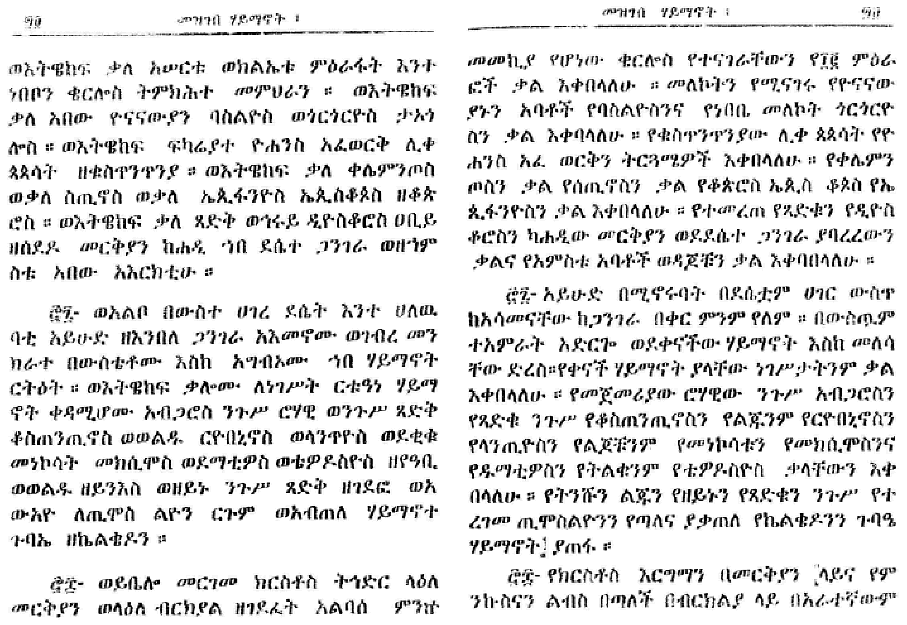 መዝገበ ሃይማኖት ፤
ወእትዌከፍ ቃለ አሠርቱ ወክልኤቱ ምዕራፋት እንተ
ነበቦን ቄርሎስ ትምክሕተ መምህራን ። ወእትዌከፍ
ቃለ አበው ዮናናውያን ባስልዮስ ወጎርጎርዮስ ታኦጎ
ሎስ ። ወእትዌከፍ ፍካሬያተ ዮሐንስ አፈወርቅ ሊቀ
ጳጳሳት ዘቁስጥንጥንያ ። ወእትዌከፍ ቃለ ቀሌምንጦስ
ወቃለ ስጢኖስ ወቃለ ኤጲፋንዮስ ኤጲስቆጶስ ዘቆጵ
ሮስ ። ወእትዌከፍ ቃለ ጻድቅ ወኅሩይ ዲዮስቆሮስ ዐቢይ
ዘሰደዶ መርቅያን ከሐዲ ኀበ ደሴተ ጋንገራ ወዘኀም
ስቱ አበው አእርክቲሁ ።
፳፯- ወአልቦ በውስተ ሀገረ ደሴት እንተ ሀለዉ
ባቲ አይሁድ ዘእንበለ ጋንገራ አእመኖሙ ወገብረ መን
ክራተ በውስቴቶሙ እስከ አግብአሙ ኀበ ሃይማኖት
ርትዕት ። ወእትዌከፍ ቃሎሙ ለነገሥት ርቱዓነ ሃይማ
ኖት ቀዳሚሆሙ አብጋሮስ ንጉሥ ሮሃዊ ወንጉሥ ጻድቅ
ቆስጠንጢኖስ ወወልዱ ርዮበኒኖስ ወላንዋዮስ ወደቂቁ
መነኮሳት መክሲሞስ ወደማቴዎስ ወቴዎዶስዮስ ዘየዓቢ
ወወልዱ ዘይንእስ ወዘይኑ ንጉሥ ጻድቅ ዘገደፎ ወአ
ውአዮ ለጢሞስ ልዮን ርጉም ወአብጠለ ሃይማኖተ
ጉባኤ ዘኬልቄዶን ።
፳፰- ወይቤሎ መርገመ ክርስቶስ ትኅድር ላዕለ
መርቅያን ወላዕለ ብርክያል ዘገደፈት አልባሰ ምንኵ
መዝገበ ሃይማኖት ፤
መመኪያ የሆነው ቄርሎስ የተናገራቸውን የ፲፪ ምዕራ
ፎች ቃል እቀበላለሁ ። መለኮትን የሚናገሩ የዮናናው
ያኑን አባቶች የባስልዮስንና የነበቤ መለኮት ጎርጎርዮ
ስን ቃል እቀባላለሁ ። የቁስጥንጥንያው ሊቀ ጳጳሳት የዮ
ሐንስ አፈ ወርቅን ትርጓሜዎች እቀበላለሁ ። የቀሌምን
ጦስን ቃል የሰጢኖስን ቃል የቆጵሮስ ኤጲስ ቆጶስ የኤ
ጲፋንዮስን ቃል እቀበላለሁ ። የተመረጠ የጻድቁን የዲዮስ
ቆሮስን ካሐዲው መርቅያን ወደደሴተ ጋንገራ ያባረረውን
ቃልና የአምስቱ አባቶች ወዳጆቹን ቃል እቀባበላለሁ ።
፳፯- አይሁድ በሚኖሩባት በደሴቷም ሀገር ውስጥ
ከአሳመናቸው ከጋንገራ በቀር ምንም የለም ። በውስጧም
ተአምራት አድርጎ ወደቀናችው ሃይማኖት እስከ መለሳ
ቸው ድረስ።የቀናች ሃይማኖት ያላቸው ነገሥታትንም ቃል
እቀበላለሁ ። የመጀመሪያው ሮሃዊው ንጉሥ አብጋሮስን
የጻድቁ ንጉሥ የቆስጠንጢኖስን የልጁንም የርዮበኒኖስን
የላንጢዮስን የልጆቹንም የመነኮሳቱን የመክሲሞስንና
የዱማቴዎስን የትልቁንም የቴዎዶስዮስ ቃላቸውን እቀ
በላለሁ ። የትንሹን ልጁን የዘይኑን የጻድቁን ንጉሥ የተ
ረገመ ጢሞስልዮንን የጣለና ያቃጠለ የኬልቄዶንን ጉባዔ
ሃይማኖት ያጠፋ ።
፳፰- የክርስቶስ እርግማን በመርቅያን ላይና የም
ንኩስናን ልብስ በጣለች በብርክልያ ላይ በአራተኛውም